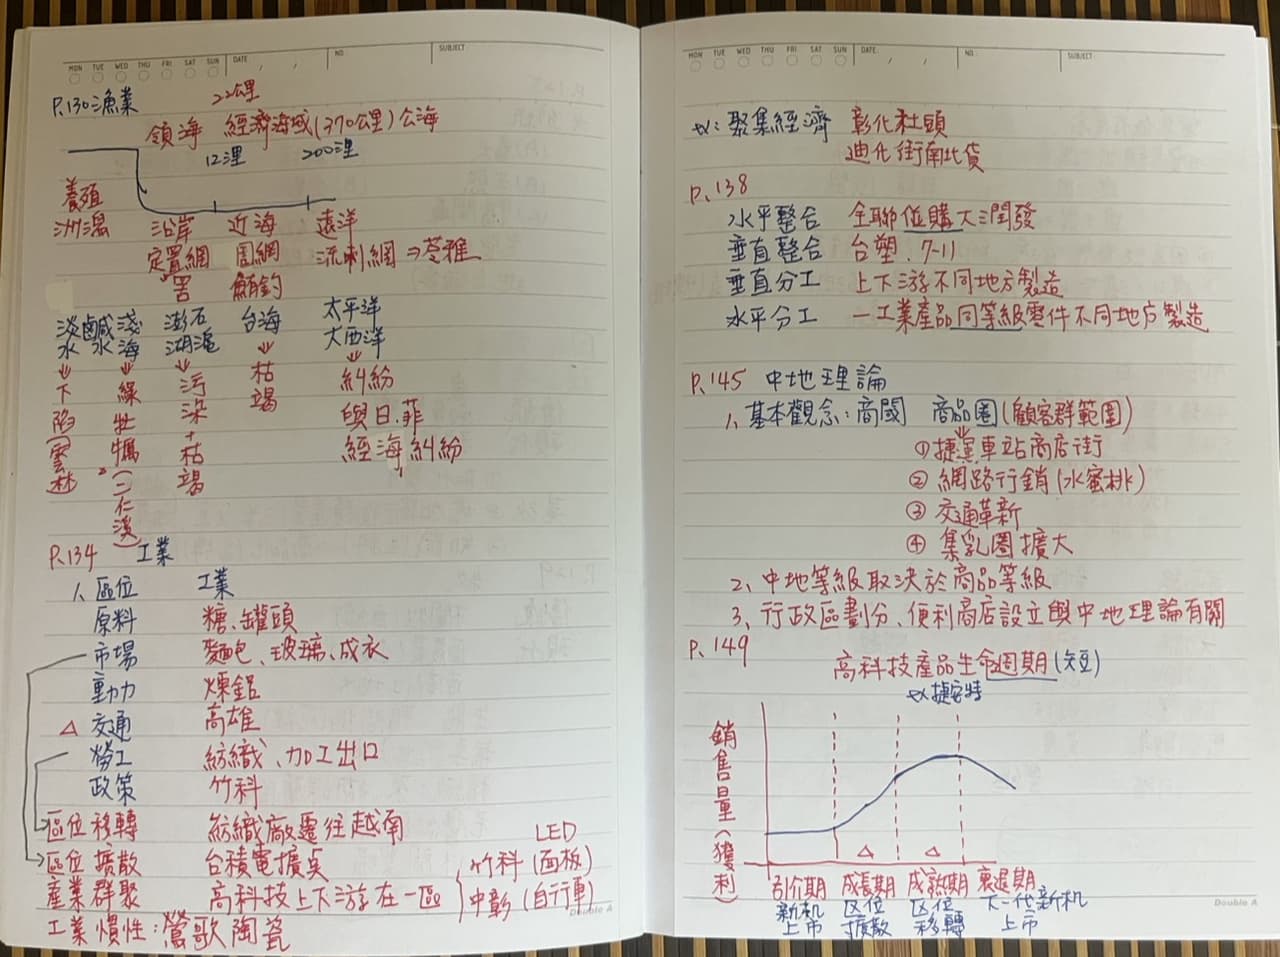 MON TUE WED THU FRI SAT SUN DATE / / NO. SUBJECT
P.130漁業
22公里
領海 經濟海域(370公里)公海
12浬 200浬
養殖
沿岸 近海 遠洋
定置網 圍網 流刺網⇒苓雅
罟 鮪釣
淡水 鹹水 淺海 澎湖 石滬 台海 太平洋
大西洋
下陷(雲林
綠牡蠣(二仁溪)
污染+枯竭
枯竭
糾紛
與日.菲
經海糾紛
P.134 工業
1、區位 工業
原料 糖、罐頭
市場 麵包、玻璃、成衣
動力 煉鋁
△ 交通 高雄
勞工 紡織、加工出口
政策 竹科
區位移轉 紡織廠遷往越南
區位擴散 台積電擴
產業群聚 高科技上下游在一區
LED
竹科(面板)
中彰(自行車)
工業慣性:鶯歌陶瓷
Double A
MON TUE WED THU FRI SAT SUN DATE: / / NO.: SUBJECT:
ex:聚集經濟 彰化社頭
迪化街南北貨
P.138
水平整合 全聯併購大潤發
垂直整合 台塑.7-11
垂直分工 上下游不同地方製造
水平分工 一工業產品同等級零件不同地方製造
P.145 中地理論
1、基本觀念:商閾 商品圈(顧客群範圍)
①捷運車站商店街
②網路行銷(水蜜桃)
③交通革新
④集乳圈擴大
2、中地等級取決於商品等級
3、行政區劃分、便利商店設立與中地理論有關
P.149
高科技產品生命週期(短)
ex捷安特
銷售量(獲利)
△ △
引介期 成長期 成熟期 衰退期
新机上市 区位擴散 区位移轉 下一代新机上市
Double A